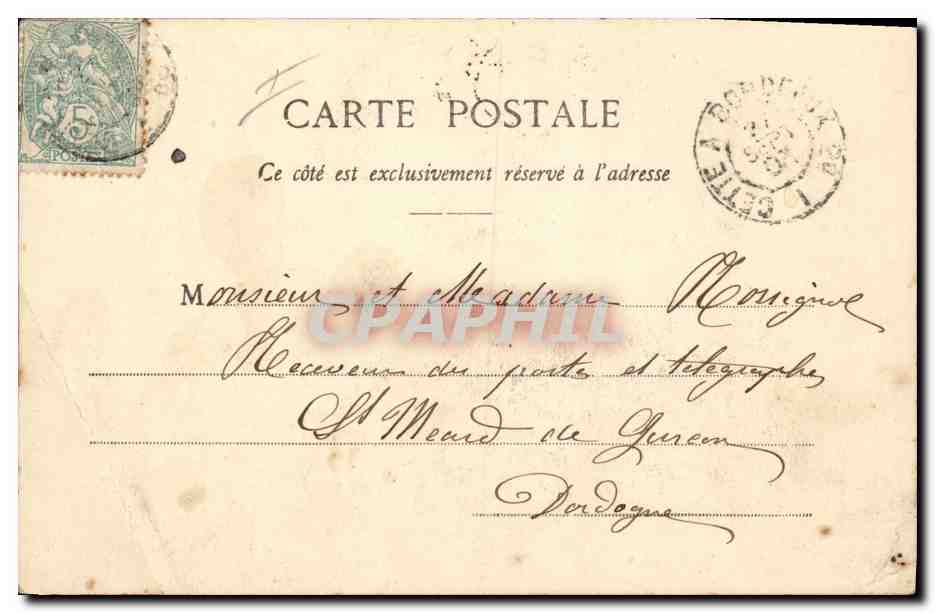 5
POSTES
CARTE POSTALE
Ce côté est exclusivement réservé à l'adresse
CETTE A BORDEAUX
Monsieur et Meadame Rossignol
CPAPHIL
Receveur des postes et télégraphes
St Méard de Gurçon
Dordogne